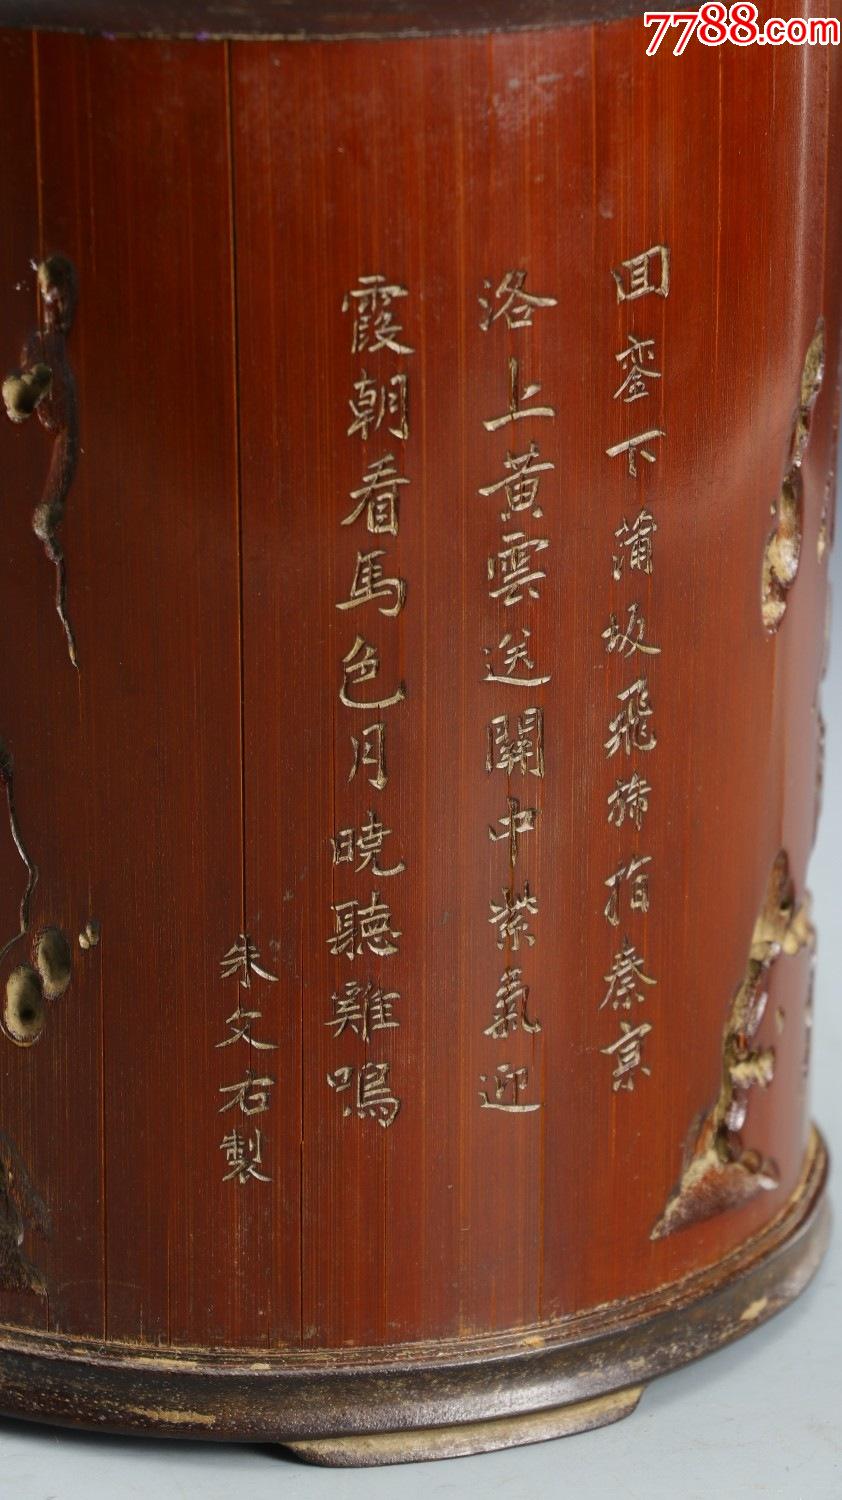 7788.com
回銮下蒲坂飛旆指秦京
洛上黄雲送關中紫氣迎
霞朝看馬色月曉聽雞鳴
朱文右製